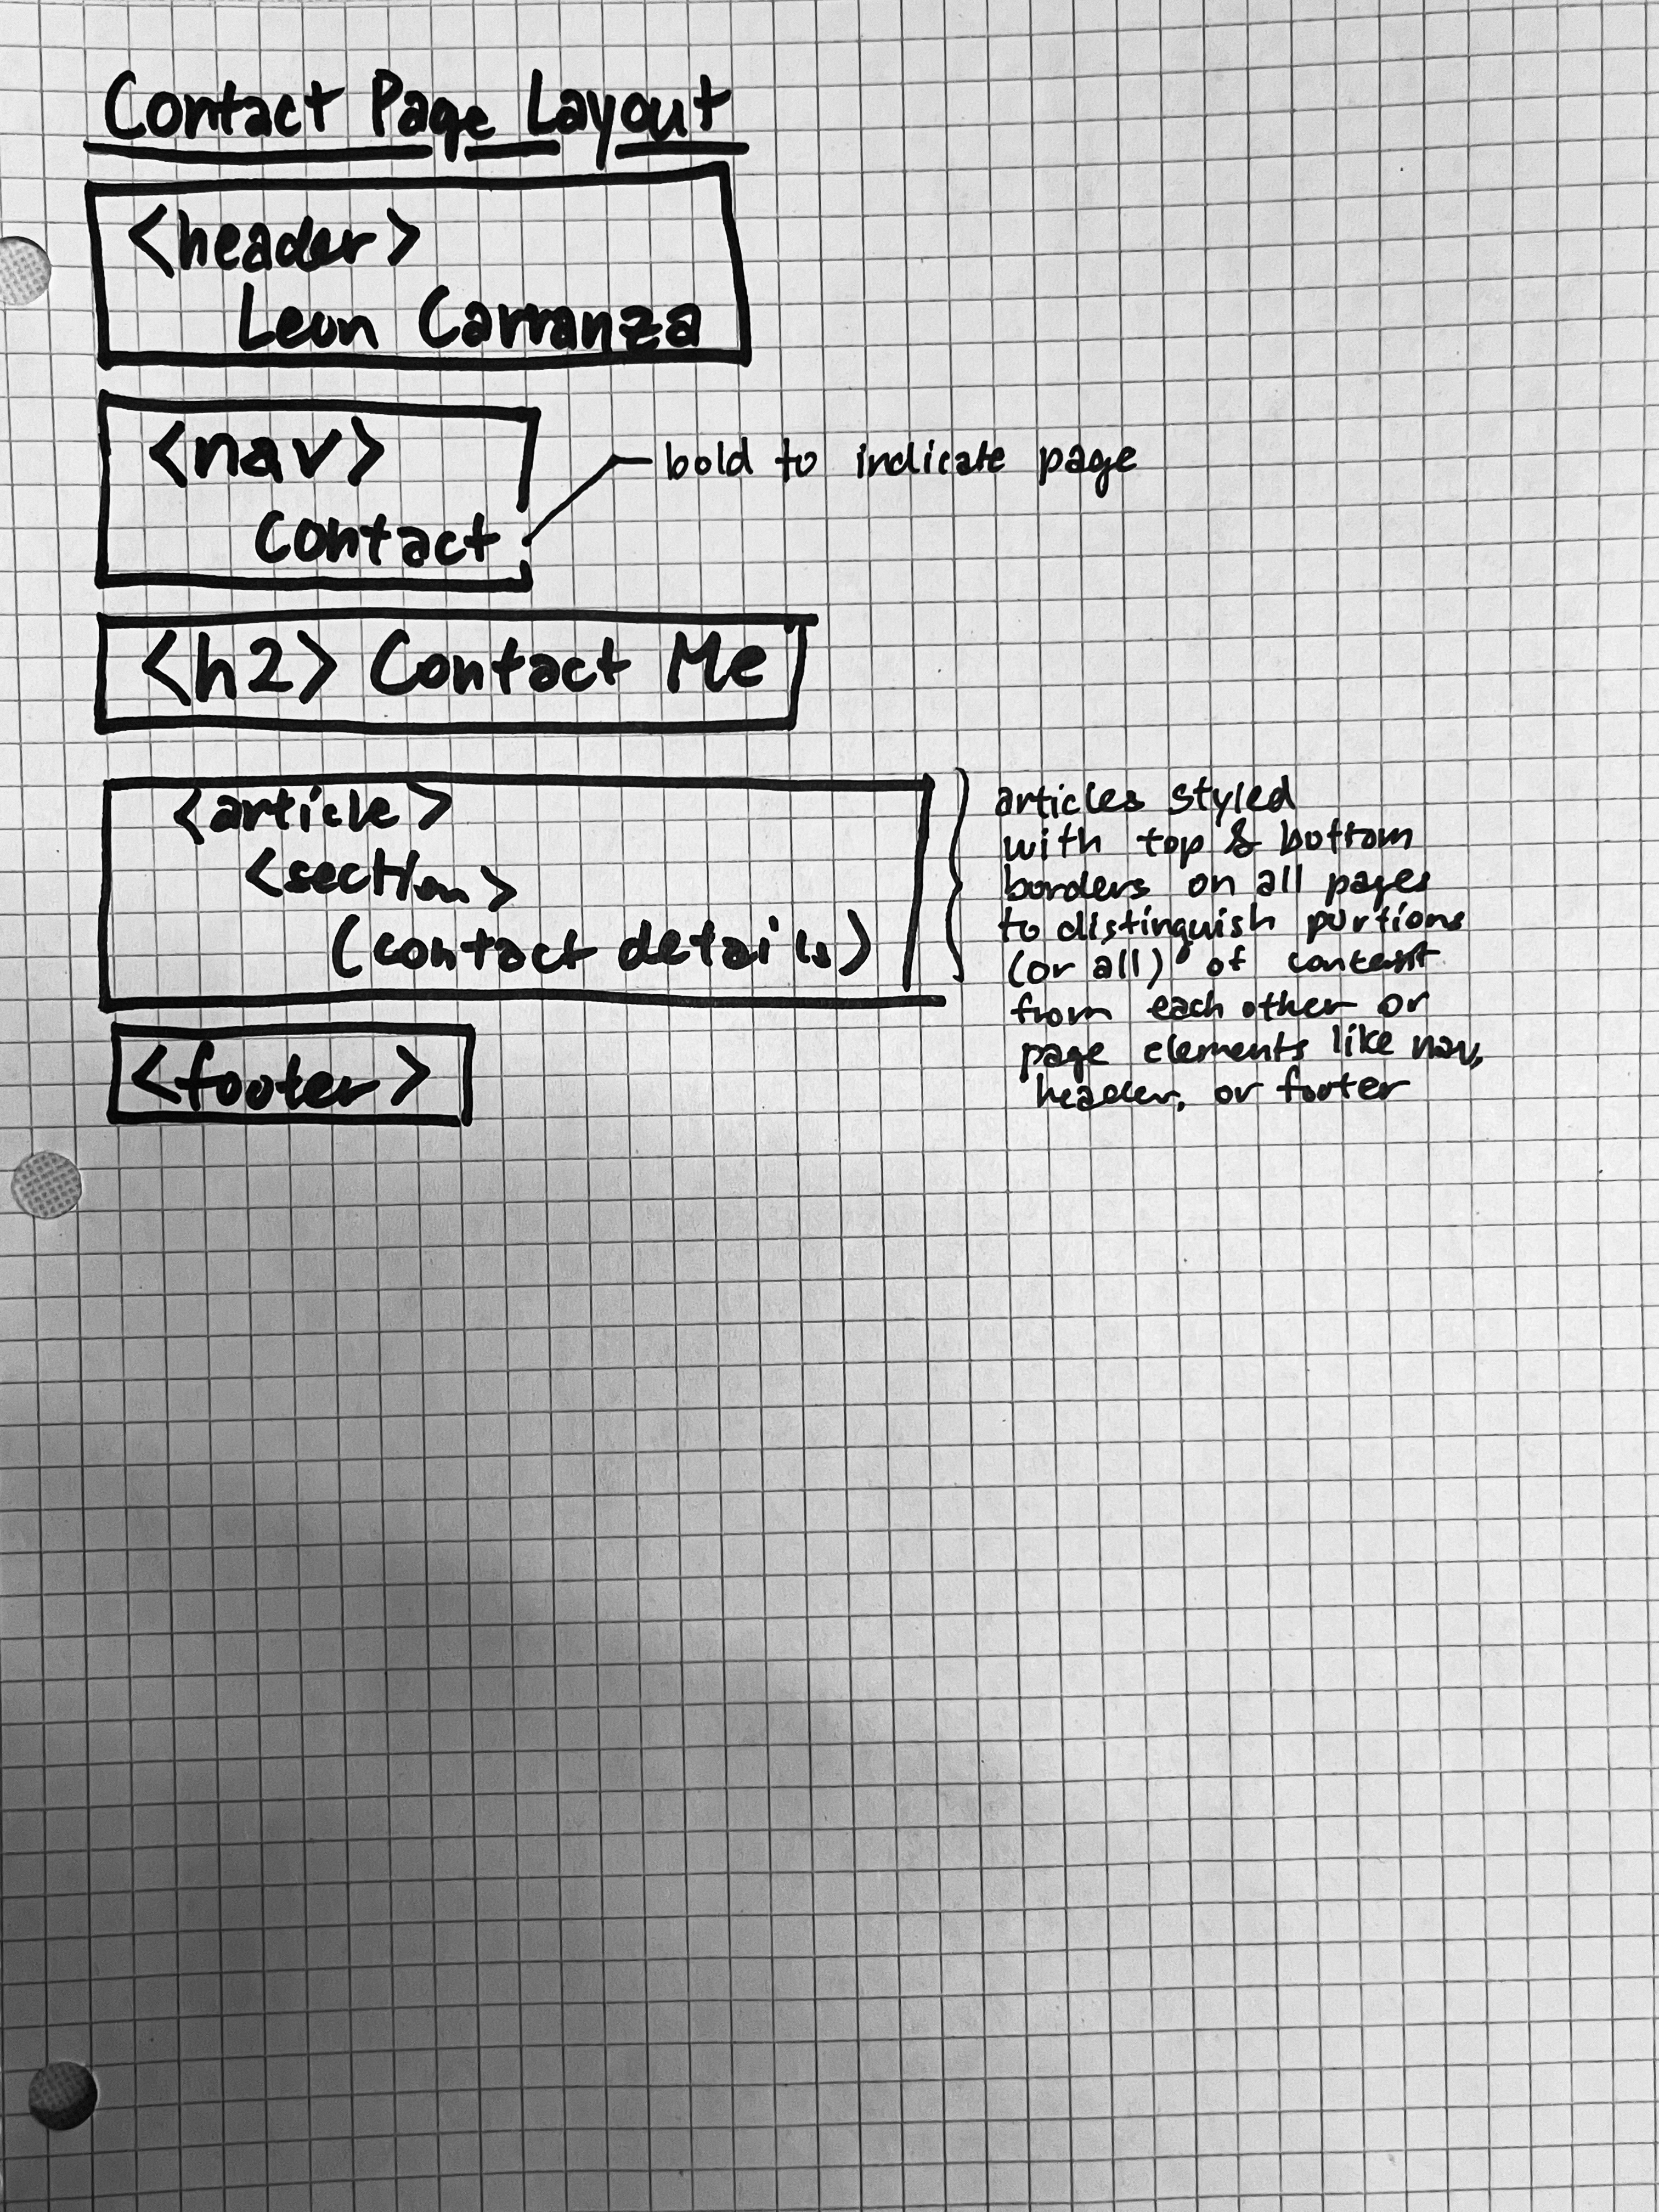 Contact Page Layout
<header>
Leon Carranza
<nav>
Contact
bold to indicate page
<h2> Contact Me
<article>
<section>
(contact details)
articles styled
with top & bottom
borders on all pages
to distinguish portions
(or all) of content
from each other or
page elements like nav,
header, or footer
<footer>